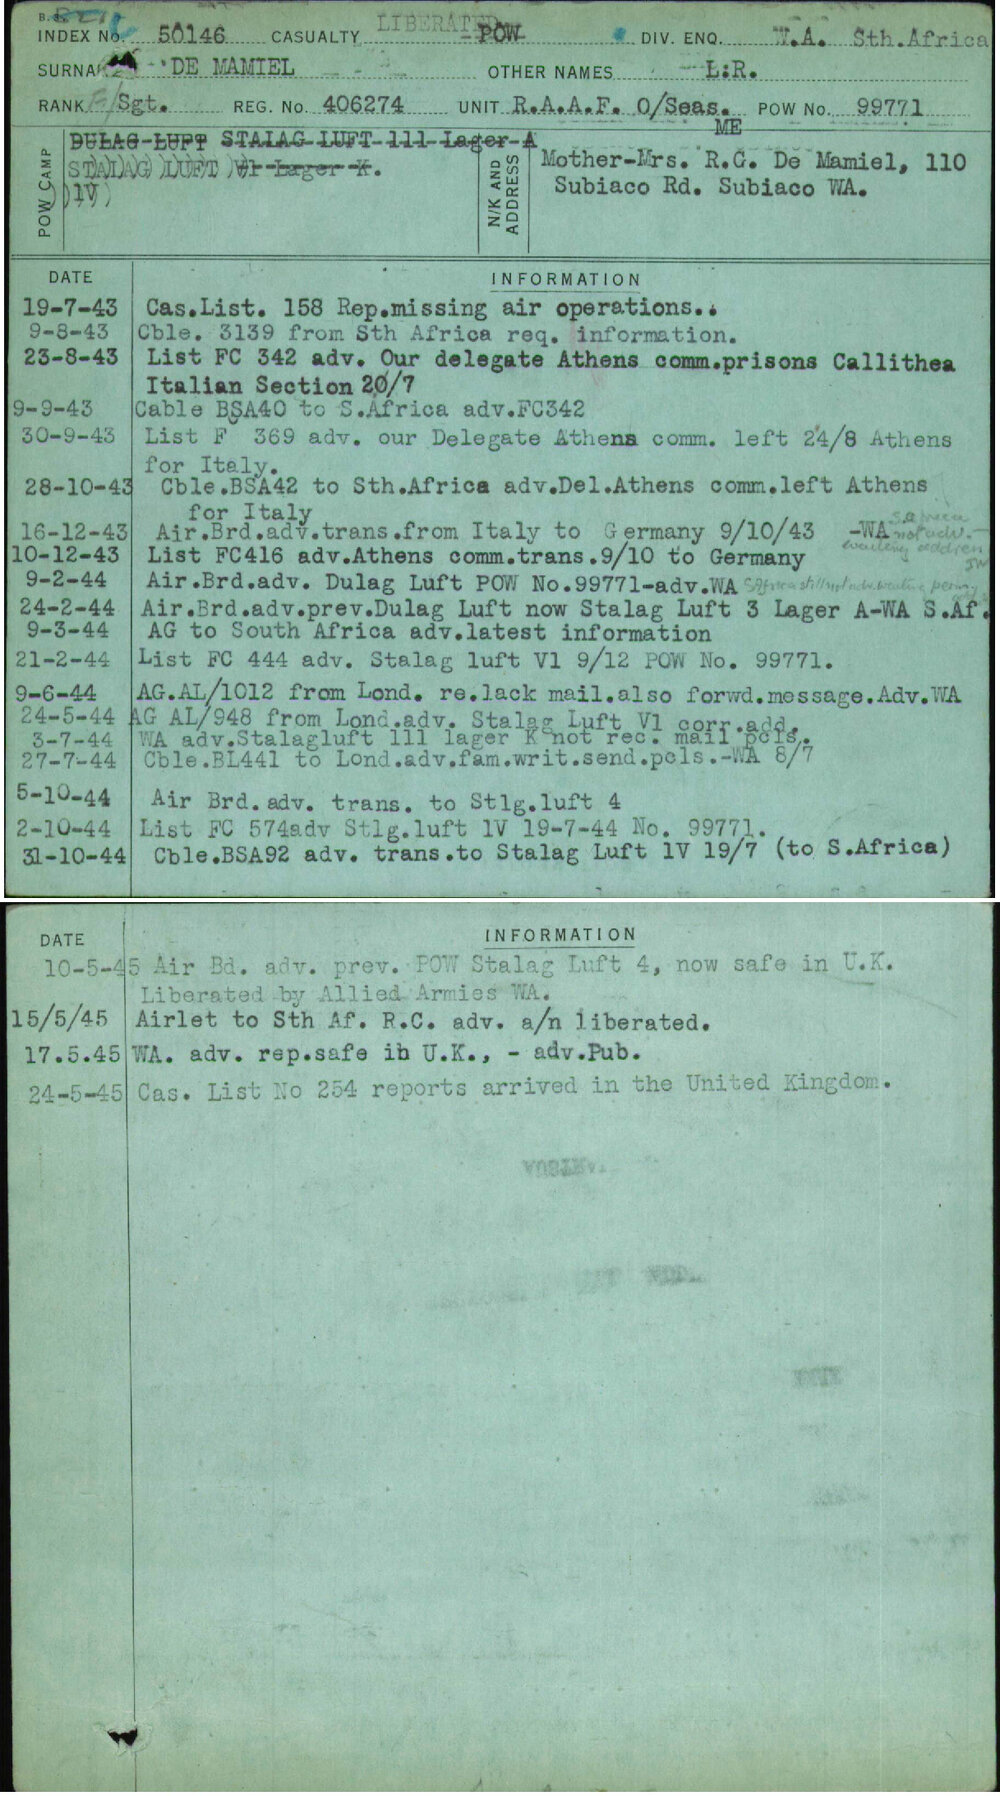 LIBERATED
INDEX No. 50146 CASUALTY POW DIV. ENQ. W.A. Sth.Africa
DE MAMIEL OTHER NAMES L.R.
RANK F/Sgt. REG. No. 406274 UNIT R.A.A.F. O/Seas. POW No. 99771
ME
POW CAMP
DULAG-LUFT STALAG LUFT 111 Lager-A
STALAG LUFT V1 Lager K.
1V
N/K AND ADDRESS
Mother-Mrs. R.G. De Mamiel, 110
Subiaco Rd. Subiaco WA.
DATE INFORMATION
19-7-43 Cas.List. 158 Rep.missing air operations..
9-8-43 Cble. 3139 from Sth Africa req. information.
23-8-43 List FC 342 adv. Our delegate Athens comm.prisons Callithea
Italian Section 20/7
9-9-43 Cable BSA40 to S.Africa adv.FC342
30-9-43 List F 369 adv. our Delegate Athens comm. left 24/8 Athens
for Italy.
28-10-43 Cble.BSA42 to Sth.Africa adv.Del.Athens comm.left Athens
for Italy
16-12-43 Air.Brd.adv.trans.from Italy to Germany 9/10/43 -WA S.Africa
not adv. -
awaiting address
10-12-43 List FC416 adv.Athens comm.trans.9/10 to Germany
9-2-44 Air.Brd.adv. Dulag Luft POW No.99771-adv.WA S.Africa still not adv. awaiting perm
24-2-44 Air.Brd.adv.prev.Dulag Luft now Stalag Luft 3 Lager A-WA S.Af.
9-3-44 AG to South Africa adv.latest information
21-2-44 List FC 444 adv. Stalag luft V1 9/12 POW No. 99771.
9-6-44 AG.AL/1012 from Lond. re.lack mail.also forwd.message.Adv.WA
24-5-44 AG AL/948 from Lond.adv. Stalag Luft V1 corr.add.
3-7-44 WA adv.Stalagluft 111 lager K not rec. mail pcls.
27-7-44 Cble.BL441 to Lond.adv.fam.writ.send.pcls.-WA 8/7
5-10-44 Air Brd.adv. trans. to Stlg.luft 4
2-10-44 List FC 574adv Stlg.luft 1V 19-7-44 No. 99771.
31-10-44 Cble.BSA92 adv. trans.to Stalag Luft 1V 19/7 (to S.Africa)
DATE INFORMATION
10-5-45 Air Bd. adv. prev. POW Stalag Luft 4, now safe in U.K.
Liberated by Allied Armies WA.
15/5/45 Airlet to Sth Af. R.C. adv. a/n liberated.
17.5.45 WA. adv. rep.safe ih U.K., - adv.Pub.
24-5-45 Cas. List No 254 reports arrived in the United Kingdom.